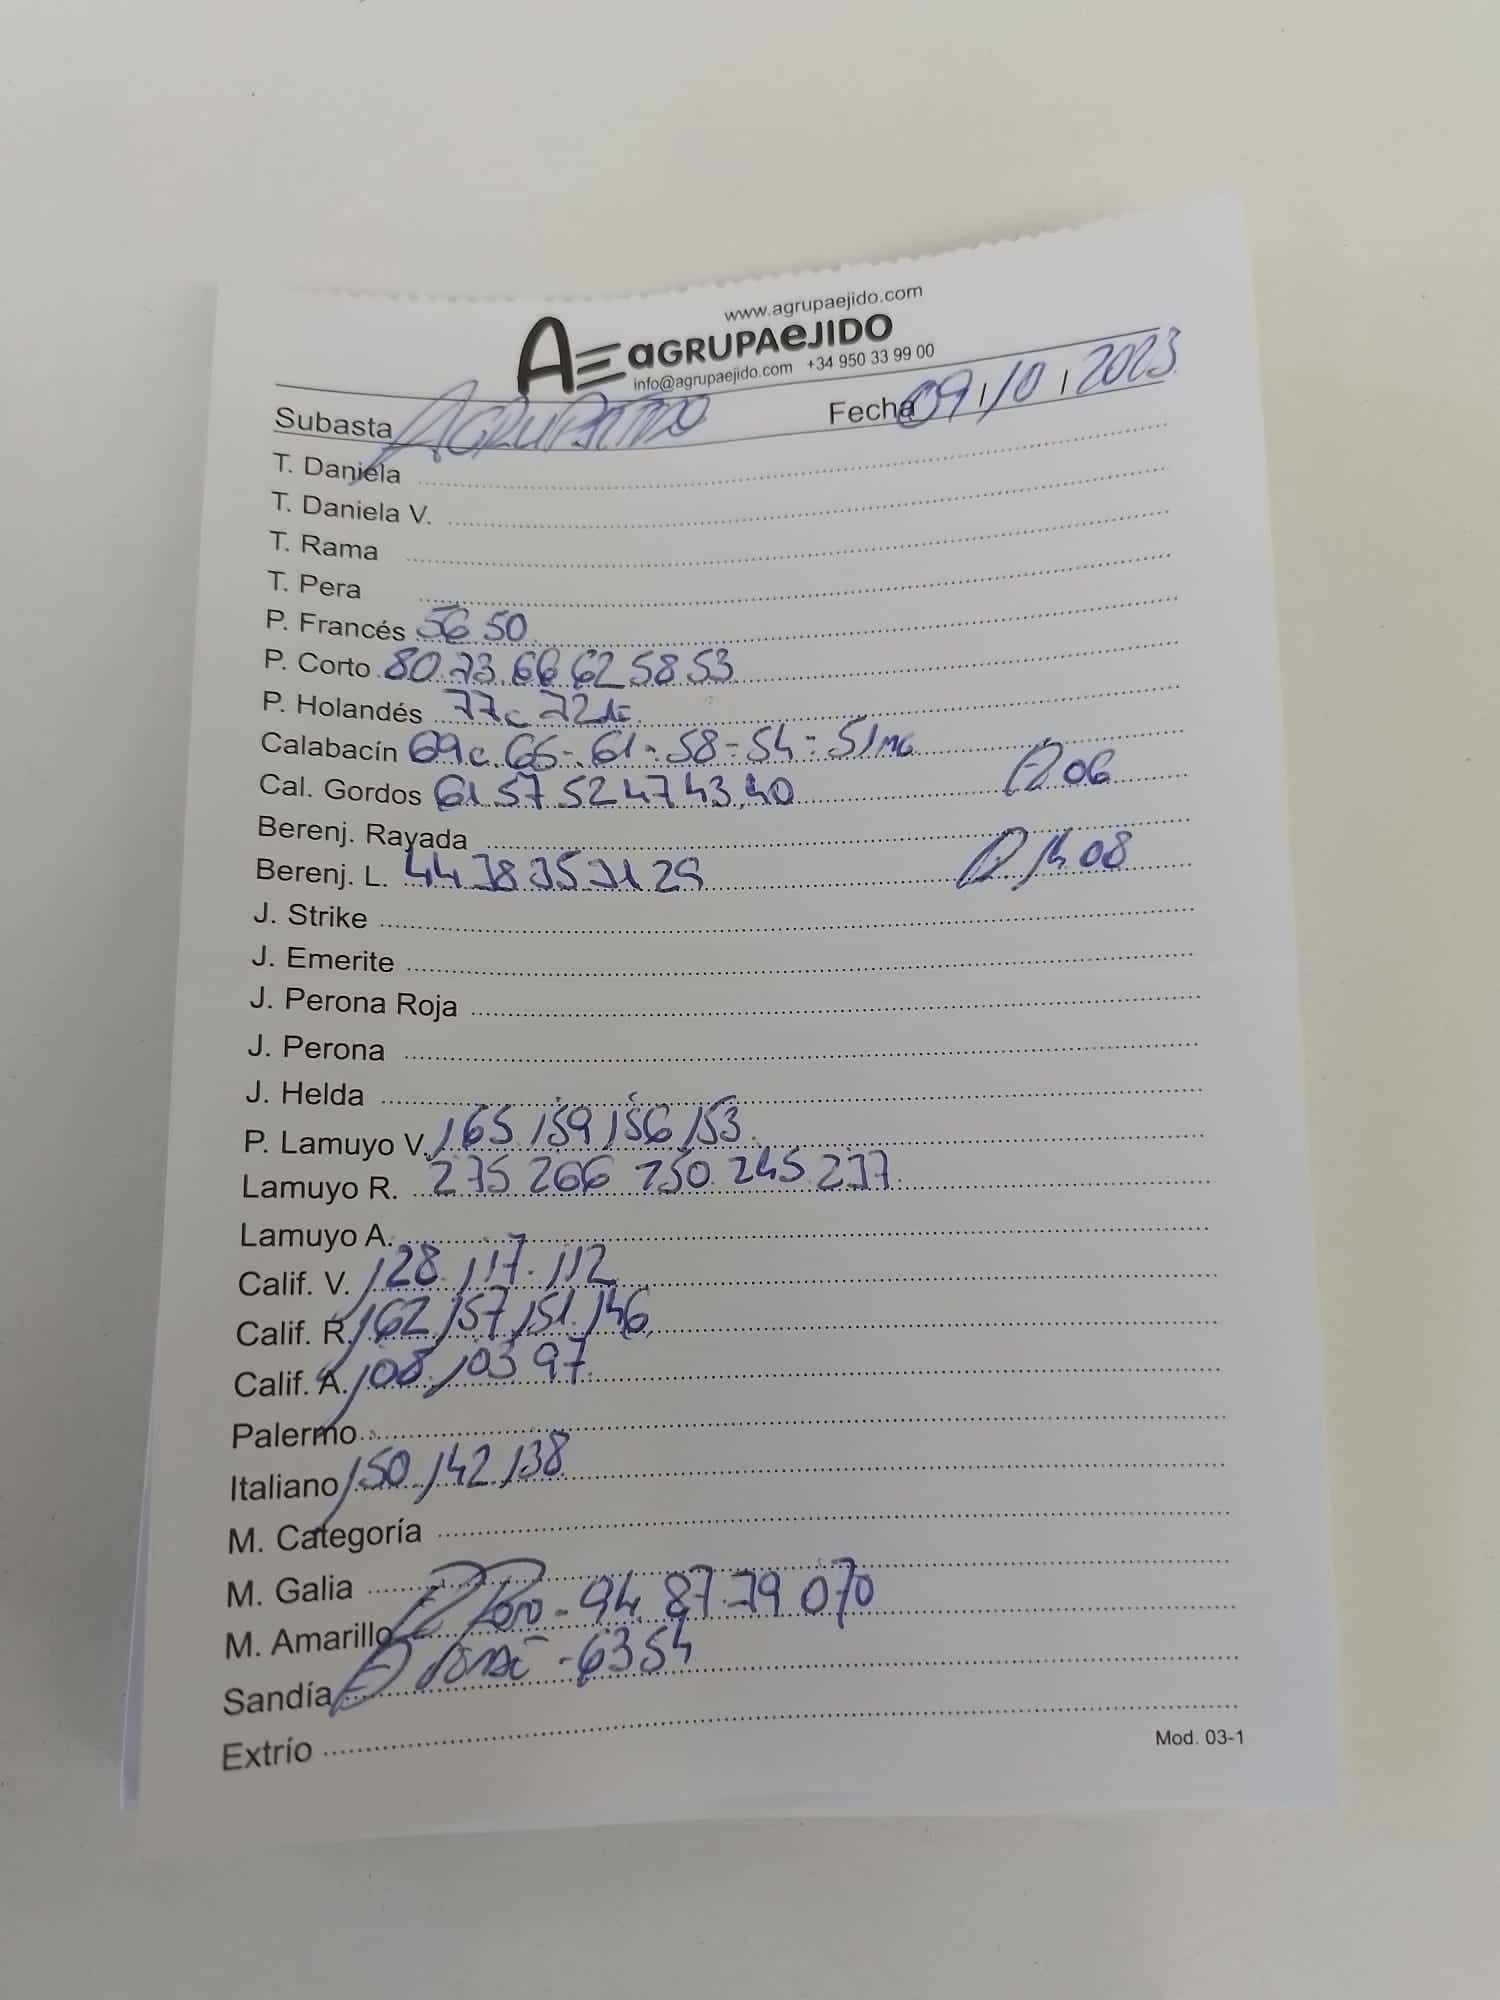 www.agrupaejido.com
AE aGRUPAeJIDO
info@agrupaejido.com +34 950 33 99 00
Subasta AGRUPAEJIDO Fecha 09/10/2023
T. Daniela
T. Daniela V.
T. Rama
T. Pera
P. Francés 56 50
P. Corto 80 73 66 62 58 53
P. Holandés 77c 72
Calabacín 69c 65 - 61 - 58 - 54 - 51
Cal. Gordos 61 57 52 47 43 40 06
Berenj. Rayada
Berenj. L. 44 38 35 31 29 08
J. Strike
J. Emerite
J. Perona Roja
J. Perona
J. Helda
P. Lamuyo V. 165 159 156 153
Lamuyo R. 275 266 250 245 237
Lamuyo A.
Calif. V. 128 117 112
Calif. R. 162 157 151 146
Calif. A. 108 103 97
Palermo
Italiano 150 142 138
M. Categoría
M. Galia
M. Amarillo - 94 87 79 070
Sandía - 63 54
Extrío
Mod. 03-1